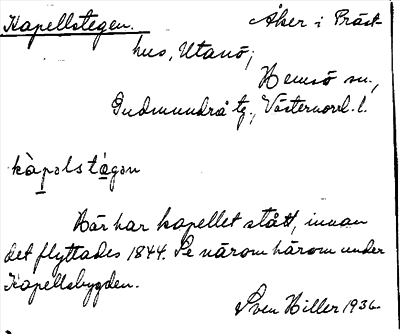 Kapellstegen. Åker i Präst-
hus, Utanö,
Hemsö sn.,
Gudmundrå tg., Västernorrl. l.
kàpəlstǝ́gǝn
Här har kapellet stått, innan
det flyttades 1844. Se närom härom under
Kapellsbygden.
Sven Hiller 1936.